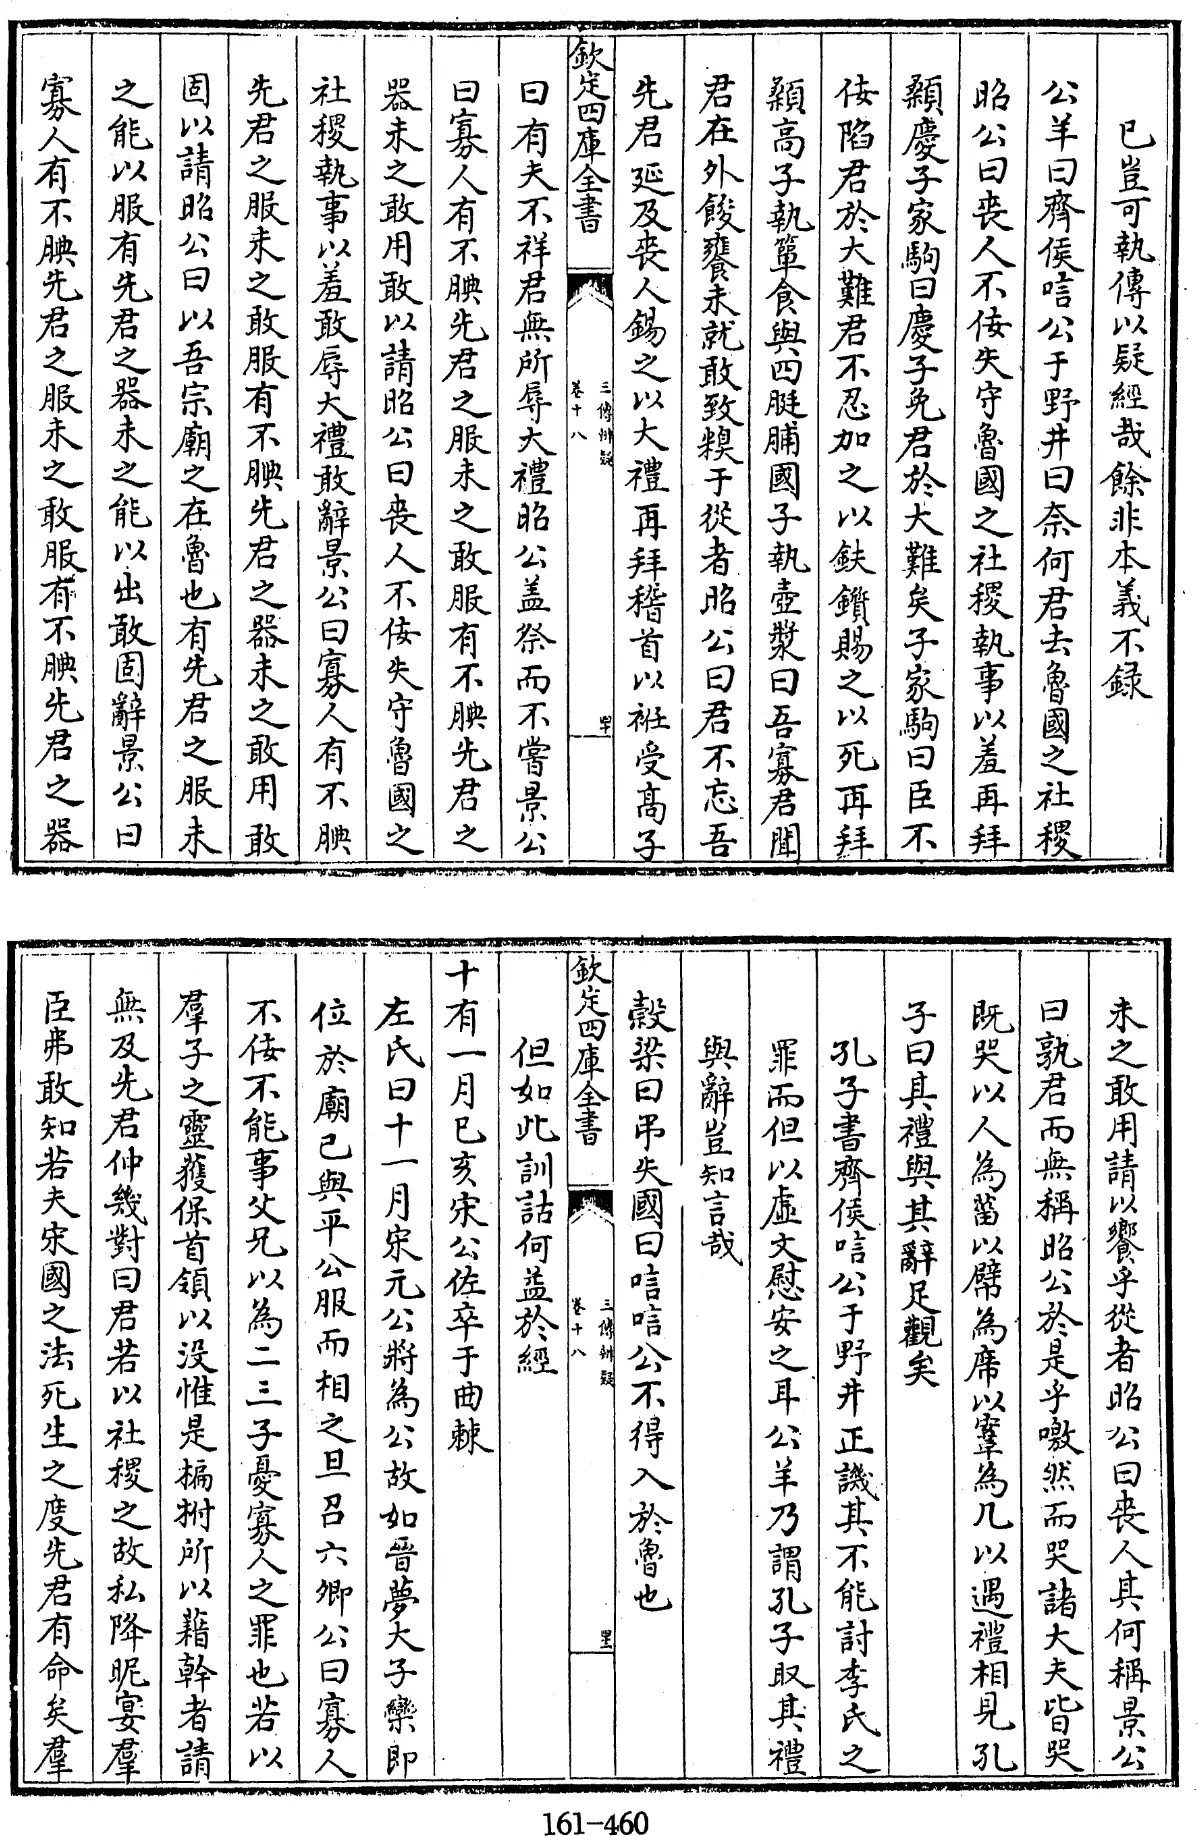 已豈可執傳以疑經哉餘非本義不録
公羊曰齊侯唁公于野井曰奈何君去魯國之社稷
昭公曰喪人不佞失守魯國之社稷執事以羞再拜
顙慶子家駒曰慶子免君於大難矣子家駒曰臣不
佞陷君於大難君不忍加之以鈇鑕賜之以死再拜
顙高子執簞食與四脡脯國子執壺漿曰吾寡君聞
君在外餕饔未就敢致糗于從者昭公曰君不忘吾
先君延及喪人錫之以大禮再拜稽首以衽受高子
欽定四庫全書
三傳辨疑
卷十八
罕
曰有夫不祥君無所辱大禮昭公盖祭而不嘗景公
曰寡人有不腆先君之服未之敢服有不腆先君之
器未之敢用敢以請昭公曰喪人不佞失守魯國之
社稷執事以羞敢辱大禮敢辭景公曰寡人有不腆
先君之服未之敢服有不腆先君之器未之敢用敢
固以請昭公曰以吾宗廟之在魯也有先君之服未
之能以服有先君之器未之能以出敢固辭景公曰
寡人有不腆先君之服未之敢服有不腆先君之器
未之敢用請以饗乎從者昭公曰喪人其何稱景公
曰孰君而無稱昭公於是乎噭然而哭諸大夫皆哭
既哭以人為菑以幦為席以鞌為几以遇禮相見孔
子曰其禮與其辭足觀矣
孔子書齊侯唁公于野井正譏其不能討李氏之
罪而但以虛文慰安之耳公羊乃謂孔子取其禮
與辭豈知言哉
榖梁曰弔失國曰唁唁公不得入於魯也
欽定四庫全書
三傳辨疑
卷十八
但如此訓詁何益於經
十有一月已亥宋公佐卒于曲棘
左氏曰十一月宋元公將為公故如晉夢大子欒即
位於廟已與平公服而相之旦召六卿公曰寡人
不佞不能事父兄以為二三子憂寡人之罪也若以
羣子之靈獲保首領以没惟是楄柎所以藉幹者請
無及先君仲幾對曰君若以社稷之故私降昵宴羣
臣弗敢知若夫宋國之法死生之度先君有命矣羣
161-460